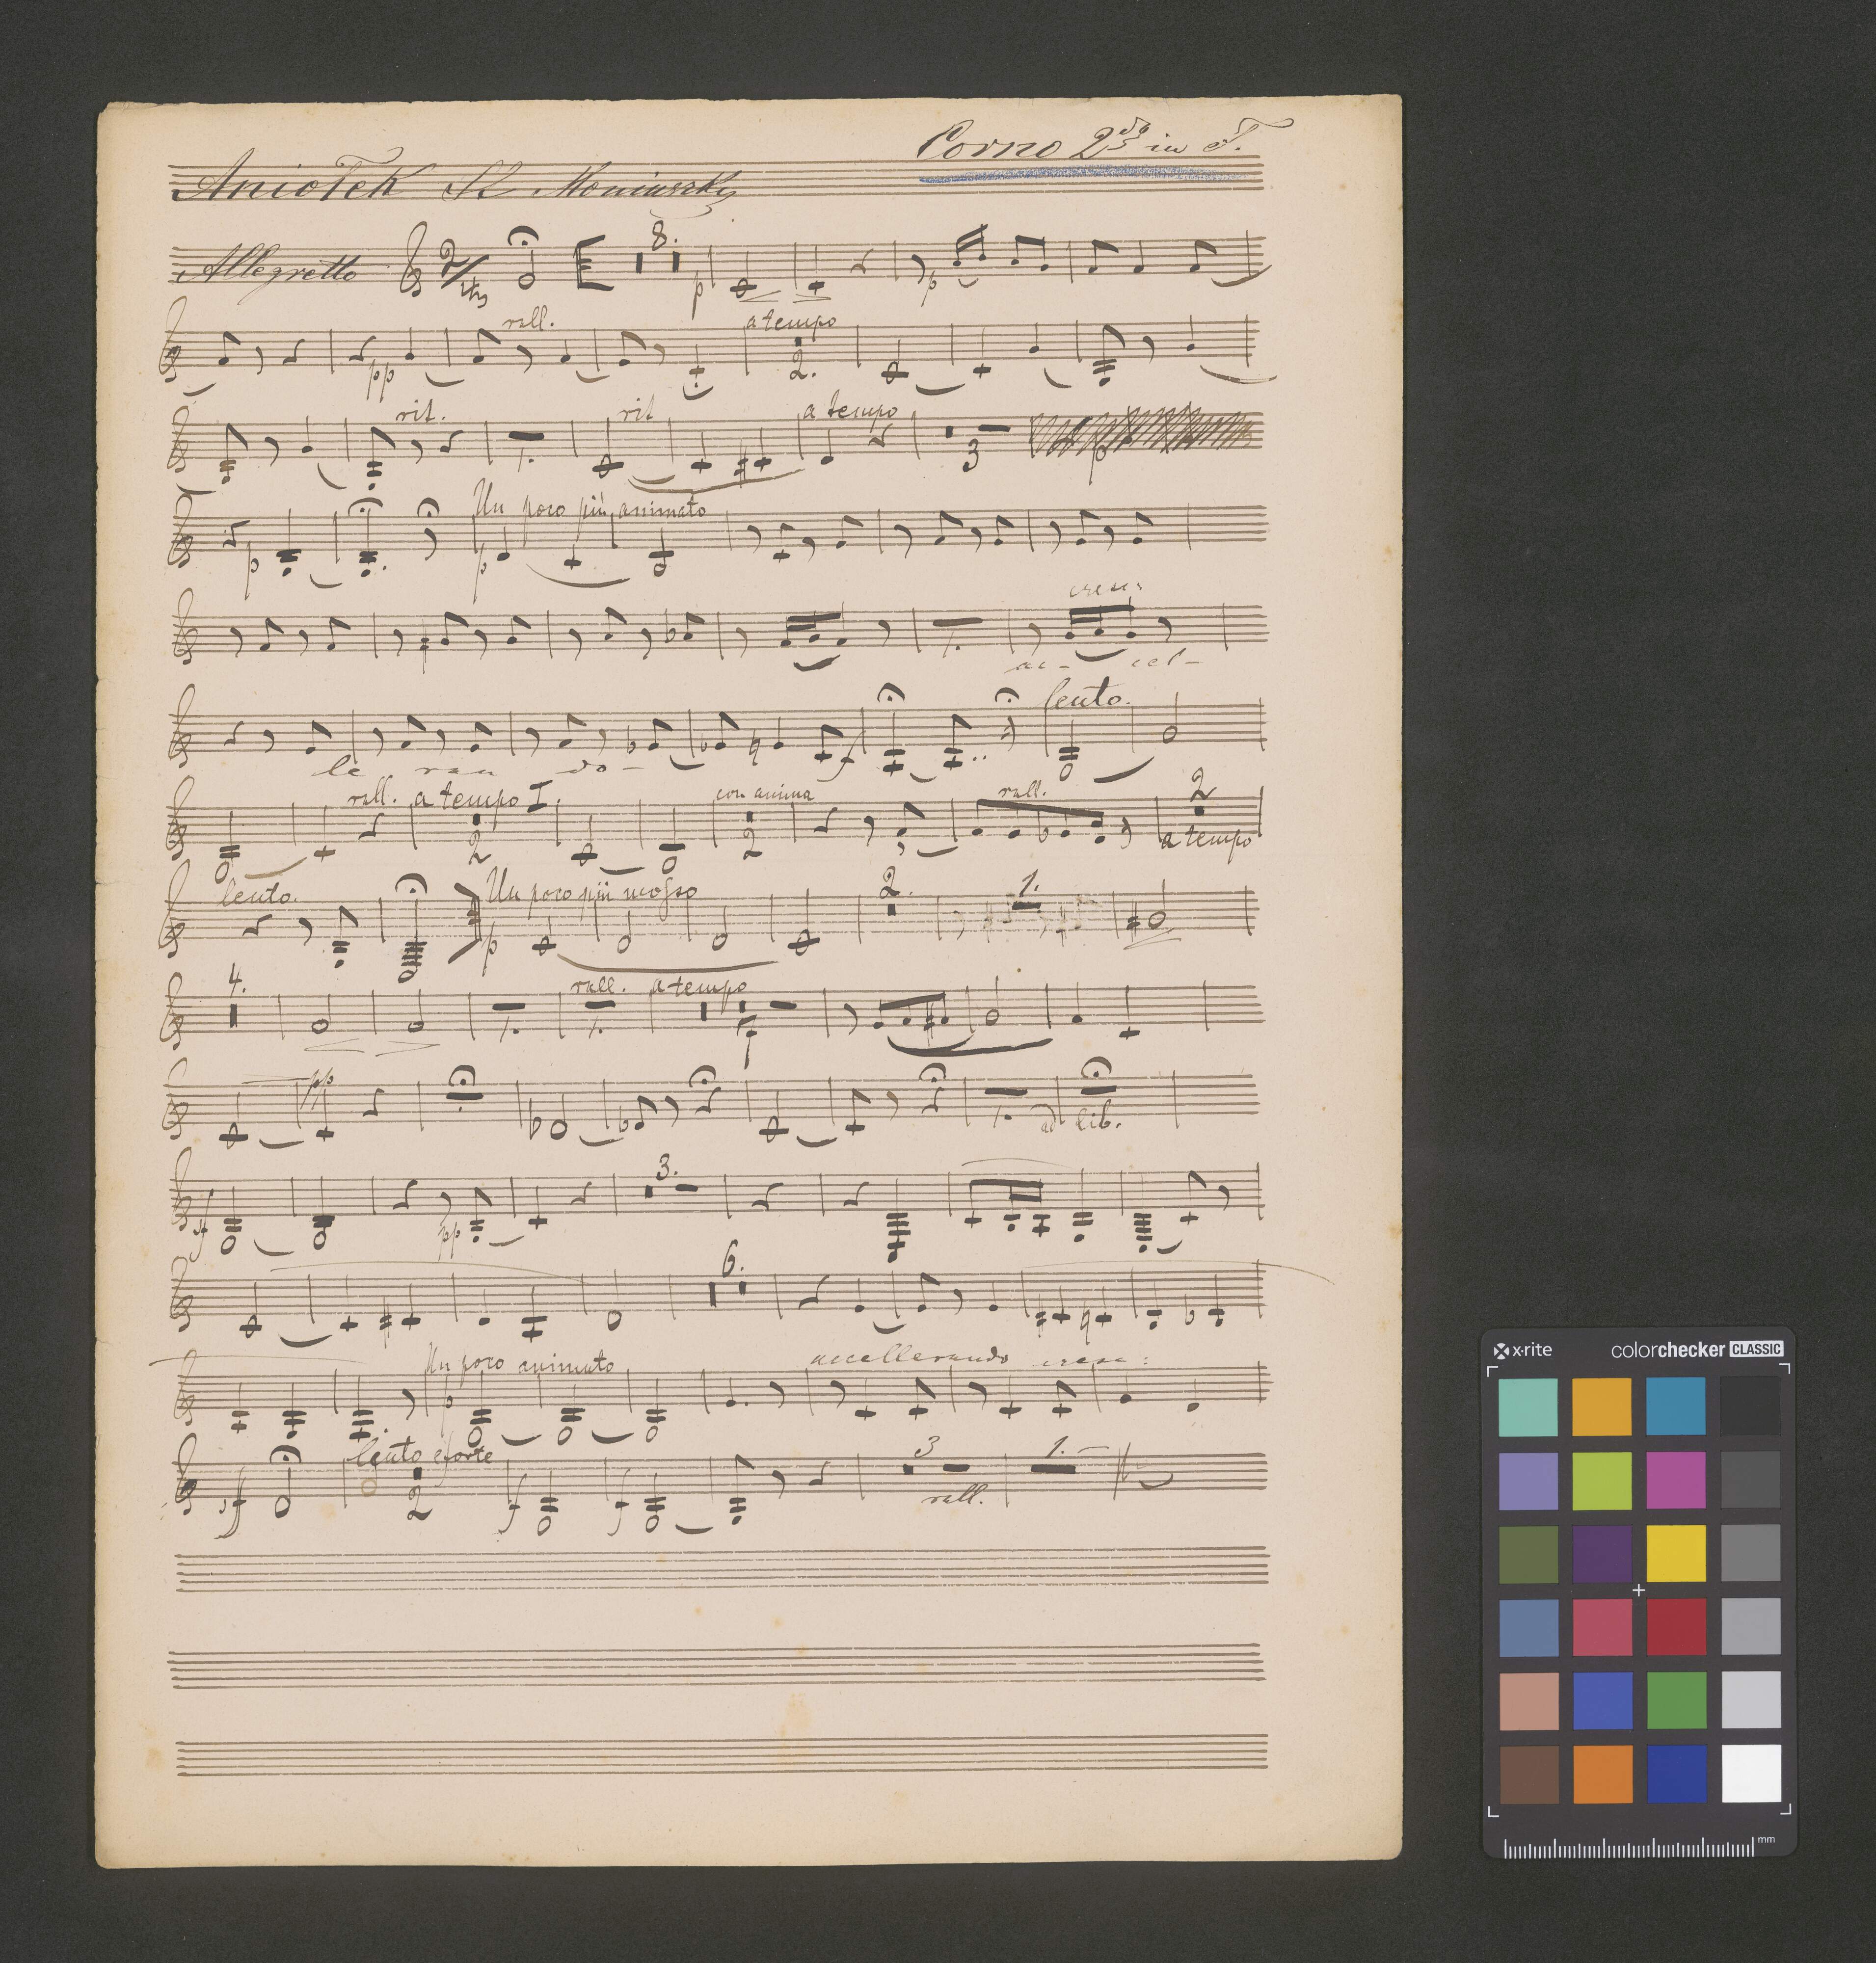 Corno 2do in F.
Aniołek St Moniuszky
Allegretto 2/4 8. p p
pp rall. a tempo 2.
rit. 1. rit a tempo 3 p
p Un poco più animato p
cresc:
1. ac- cel-
lento.
le ran do- f
rall. a tempo I. con anima rall. 2
2 2 a tempo
lento. Un poco più mosso 2. 1.
p
4. rall. a tempo
1. 1. 7
pp
1. ad lib.
3.
f pp
6.
Un poco animato accellerando cresc:
p
lento e forte 3 1.
f 2 f f rall.
x·rite colorchecker CLASSIC
mm